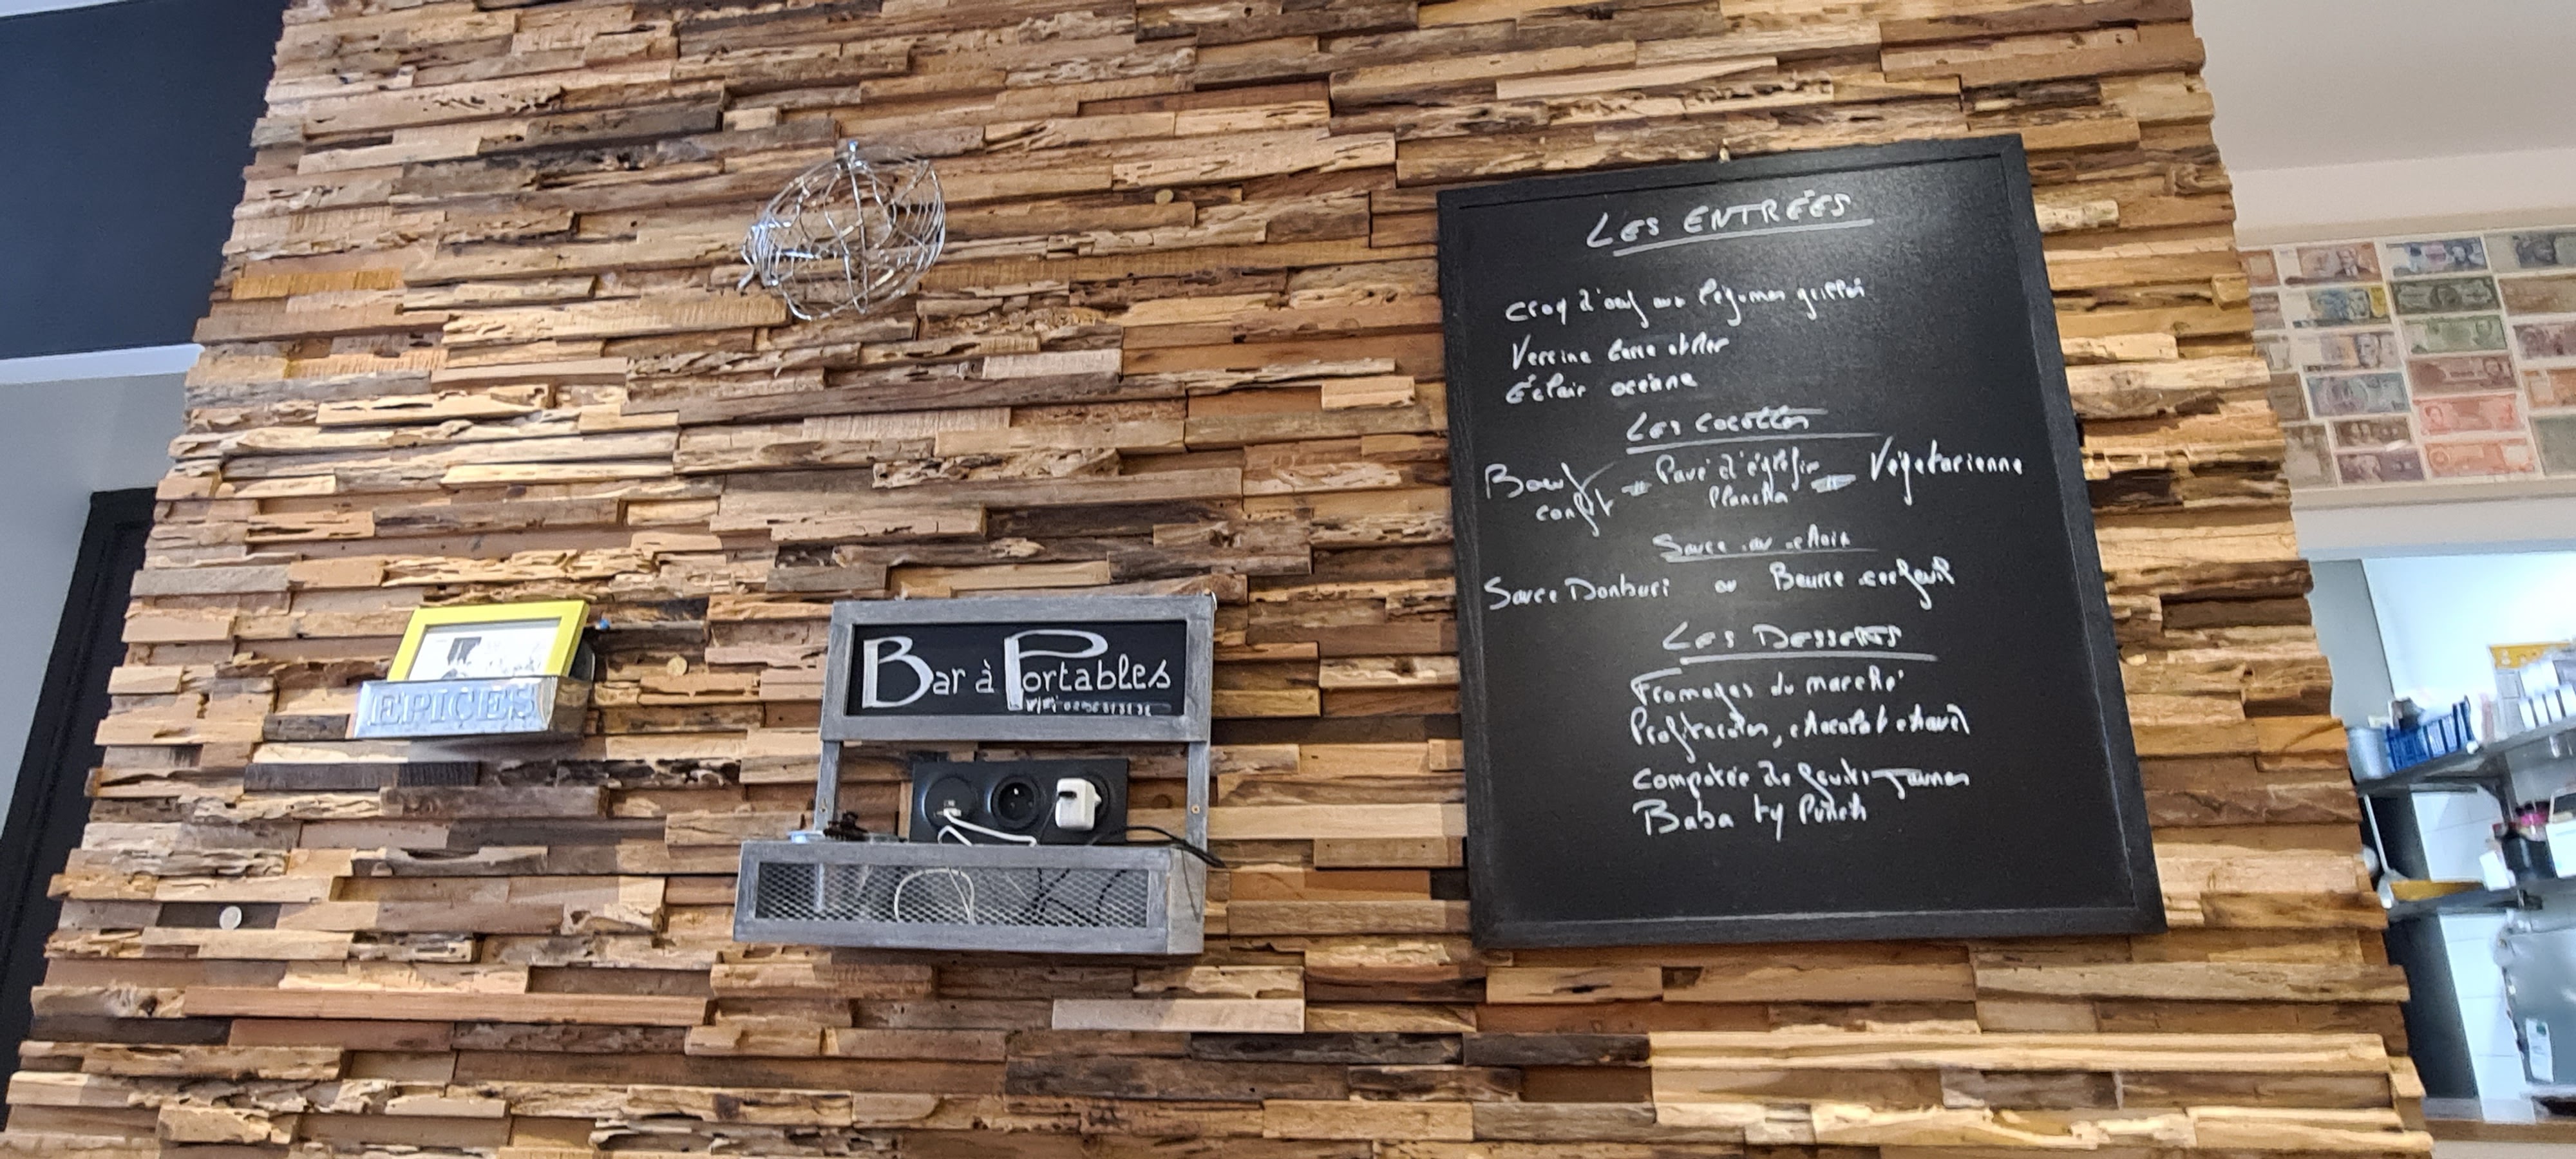 LES ENTRÉES
Croq d'oeuf aux légumes grillés
Verrine terre et Mer
Éclair océane
Les cocottes
Boeuf confit = Pavé d'églefin Plancha = Végétarienne
Sauce au choix
Sauce Donburi ou Beurre cerfeuil
Les Desserts
Fromages du marché
Profiteroles, chocolat chaud
compotée de fruits jaunes
Baba ty Punch
EPICES
Bar à Portables